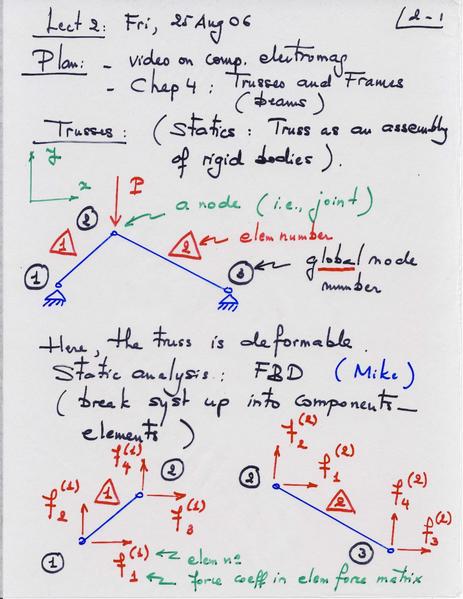 Lect 2: Fri, 25 Aug 06
2-1
Plan: - video on comp. electromag
- Chap 4: Trusses and Frames
(beams)
Trusses: (Statics: Truss as an assembly
of rigid bodies).
y
x
P
2
a node (i.e., joint)
1
2
elem number
1
3
global node
number
Here, the truss is deformable.
Static analysis: FBD (Mike)
(break syst up into components -
elements)
f4(1)
2
f2(1)
1
f3(1)
1
f1(1)
elem no
force coeff in elem force matrix
f2(2)
2
f1(2)
2
f4(2)
f3(2)
3